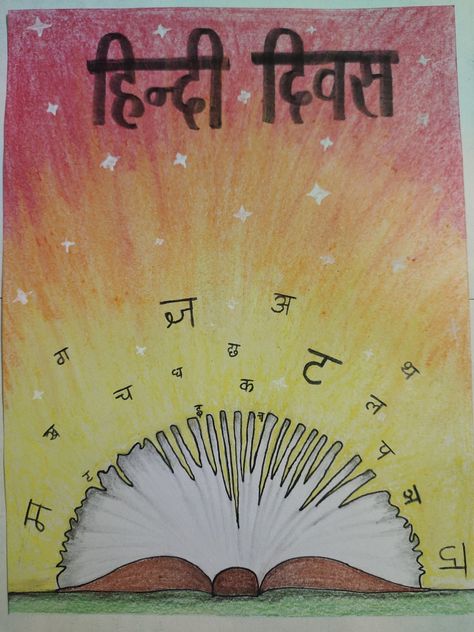 हिन्दी दिवस
अ
छ
ग
ध
ट
क
च
ल
इ
म